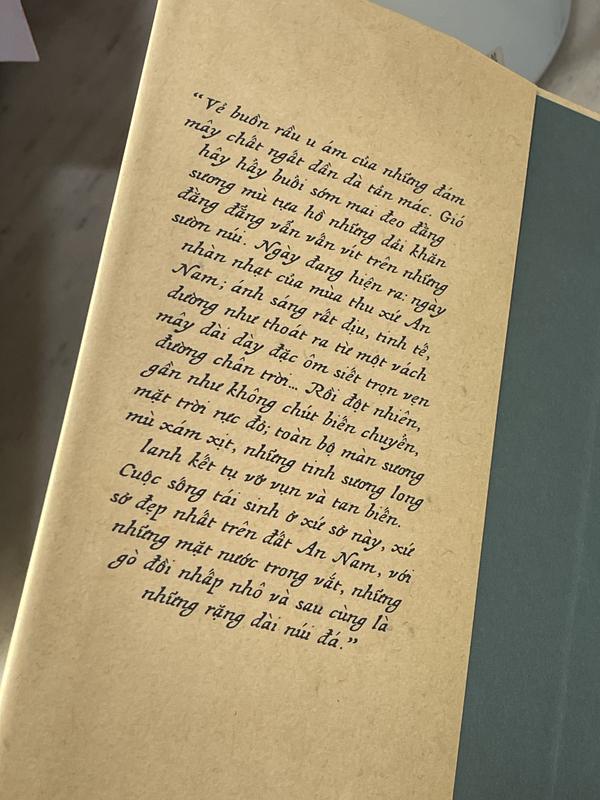 “Vẻ buồn rầu u ám của những đám
mây chất ngất dần dà tản mác. Gió
hây hẩy buổi sớm mai đeo đẳng
sương mù tựa hồ những dải khăn
đằng đẵng vẩn vấn vít trên những
sườn núi. Ngày đang hiện ra: ngày
nhàn nhạt của mùa thu xứ An
Nam; ánh sáng rất dịu, tinh tế,
dường như thoát ra từ một vách
mây dài dày đặc ôm siết trọn vẹn
đường chân trời... Rồi đột nhiên,
gần như không chút biến chuyển,
mặt trời rực đỏ; toàn bộ màn sương
mù xám xịt, những tinh sương long
lanh kết tụ vỡ vụn và tan biến.
Cuộc sống tái sinh ở xứ sở này, xứ
sở đẹp nhất trên đất An Nam, với
những mặt nước trong vắt, những
gò đồi nhấp nhô và sau cùng là
những rặng dài núi đá.”